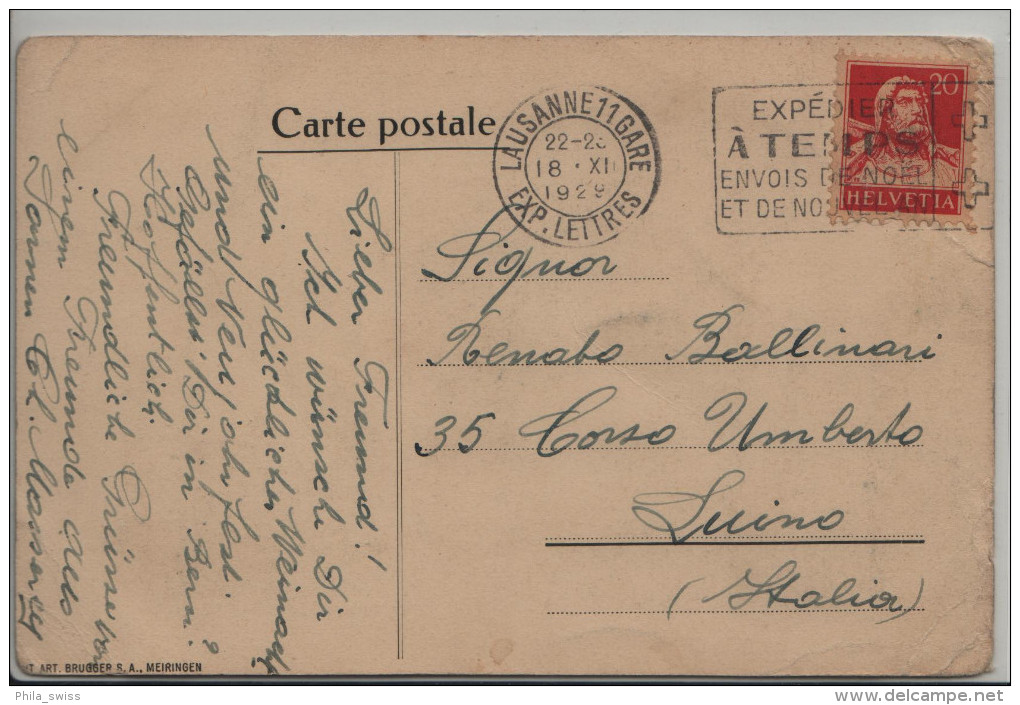 Carte postale
LAUSANNE 11 GARE
22-23
18 · XII
1929
EXP. LETTRES
EXPÉDIER
À TEMPS
ENVOIS DE NOËL
ET DE
20
HELVETIA
Signor
Renato Ballinari
35 Corso Umberto
Luino
(Italia)
Lieber Freund!
Ich wünsche Dir
ein glückliches Weinacht
und Neujahrfest.
Gefällts Dir in Bern?
Hoffentlich.
Freundliche Grüsse von
einem Freunde aus
ART. BRUGGER S. A., MEIRINGEN
Phila_swiss
www.delcampe.net